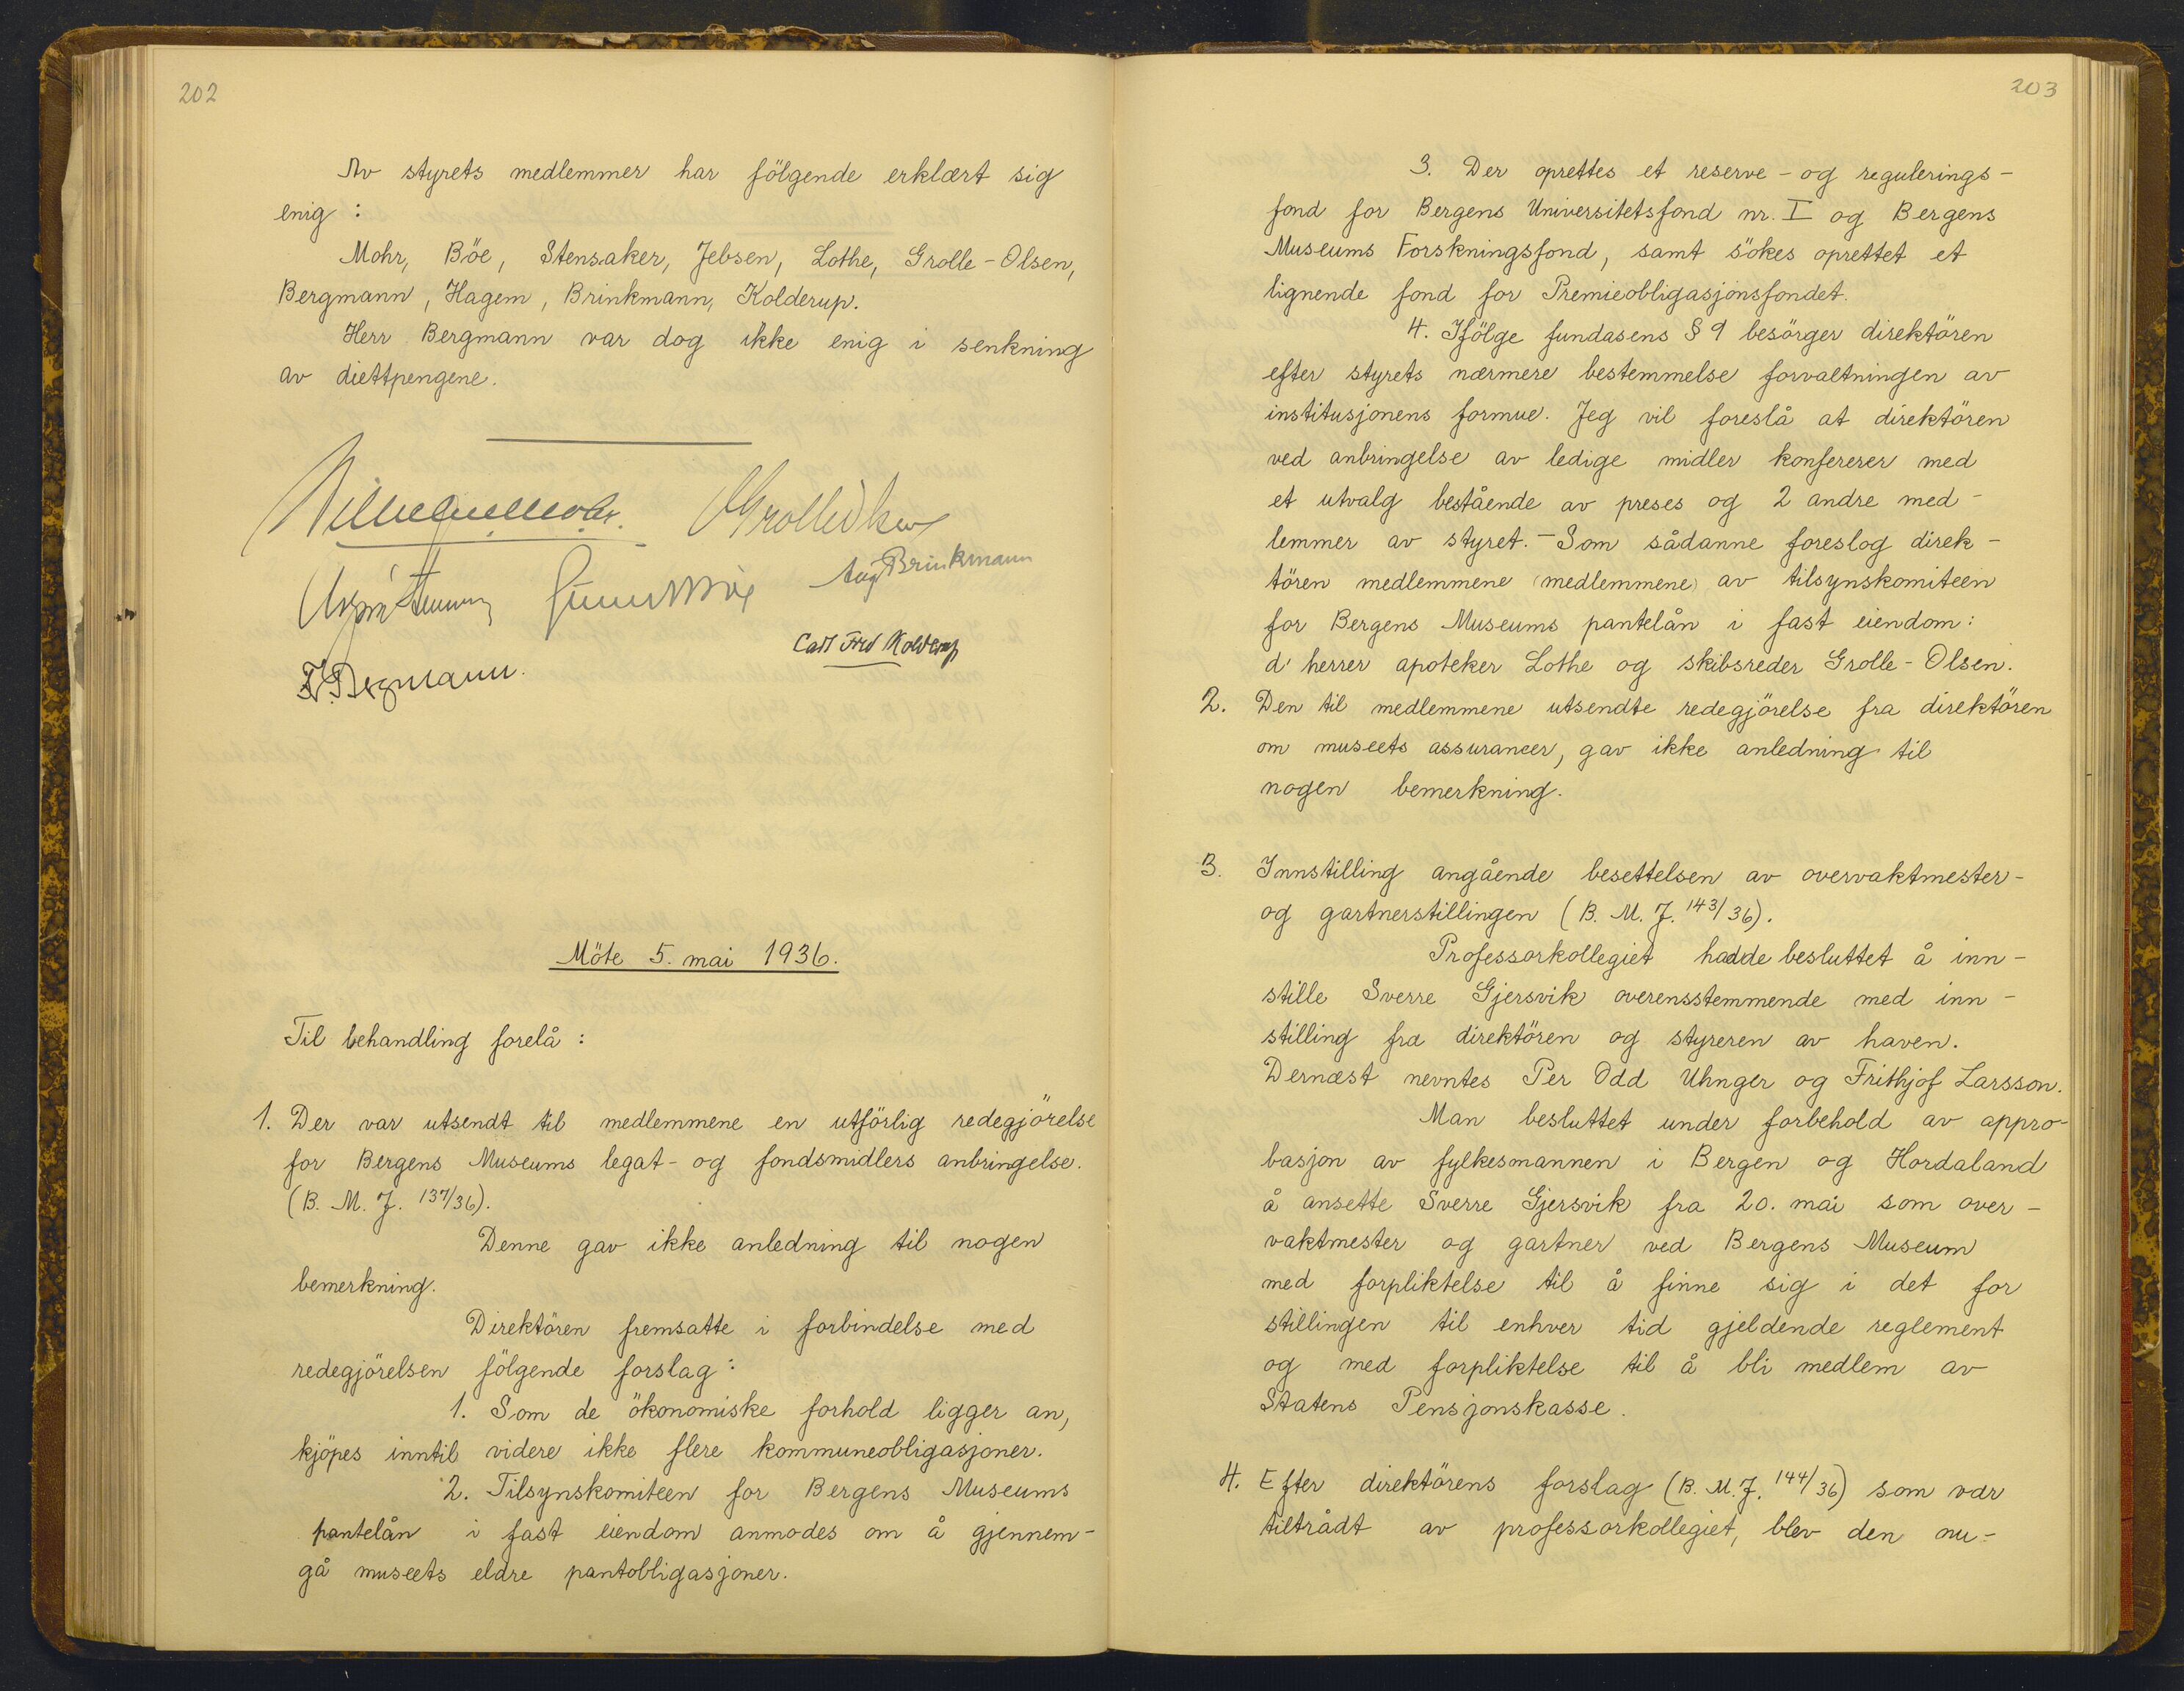 202
Av styrets medlemmer har fölgende erklært sig
enig :
Mohr, Böe, Stensaker, Jebsen, Lothe, Grolle-Olsen,
Bergmann, Hagem, Brinkmann, Kolderup.
Herr Bergmann var dog ikke enig i senkning
av diettpengene.
Wilhelm Mohr. Grolle Olsen
Aug Brinkmann
Carl Fred Kolderup
Bergmann.
Möte 5. mai 1936.
Til behandling forelå :
1. Der var utsendt til medlemmene en utförlig redegjörelse
for Bergens Museums legat- og fondsmidlers anbringelse.
(B. M. J. 137/36).
Denne gav ikke anledning til nogen
bemerkning.
Direktören fremsatte i forbindelse med
redegjörelsen fölgende forslag :
1. Som de ökonomiske forhold ligger an,
kjöpes inntil videre ikke flere kommuneobligasjoner.
2. Tilsynskomiteen for Bergens Museums
pantelån i fast eiendom anmodes om å gjennem-
gå museets eldre pantobligasjoner.
203
3. Der oprettes et reserve- og regulerings-
fond for Bergens Universitetsfond nr. I og Bergens
Museums Forskningsfond, samt sökes oprettet et
lignende fond for Premieobligasjonsfondet.
4. Ifölge fundasens § 9 besörger direktören
efter styrets nærmere bestemmelse forvaltningen av
institusjonens formue. Jeg vil foreslå at direktören
ved anbringelse av ledige midler konfererer med
et utvalg bestående av preses og 2 andre med-
lemmer av styret. - Som sådanne foreslog direk-
tören medlemmene (medlemmene) av tilsynskomiteen
for Bergens Museums pantelån i fast eiendom:
d' herrer apoteker Lothe og skibsreder Grolle-Olsen.
2. Den til medlemmene utsendte redegjörelse fra direktören
om museets assurancer, gav ikke anledning til
nogen bemerkning.
3. Innstilling angående besettelsen av overvaktmester-
og gartnerstillingen (B. M. J. 143/36).
Professorkollegiet hadde besluttet å inn-
stille Sverre Gjersvik overensstemmende med inn-
stilling fra direktören og styreren av haven.
Dernæst nevntes Per Odd Uhnger og Frithjof Larsson.
Man besluttet under forbehold av appro-
basjon av fylkesmannen i Bergen og Hordaland
å ansette Sverre Gjersvik fra 20. mai som over-
vaktmester og gartner ved Bergens Museum
med forpliktelse til å finne sig i det for
stillingen til enhver tid gjeldende reglement
og med forpliktelse til å bli medlem av
Statens Pensjonskasse.
4. Efter direktörens forslag (B. M. J. 144/36) som var
tiltrådt av professorkollegiet, blev den nu-